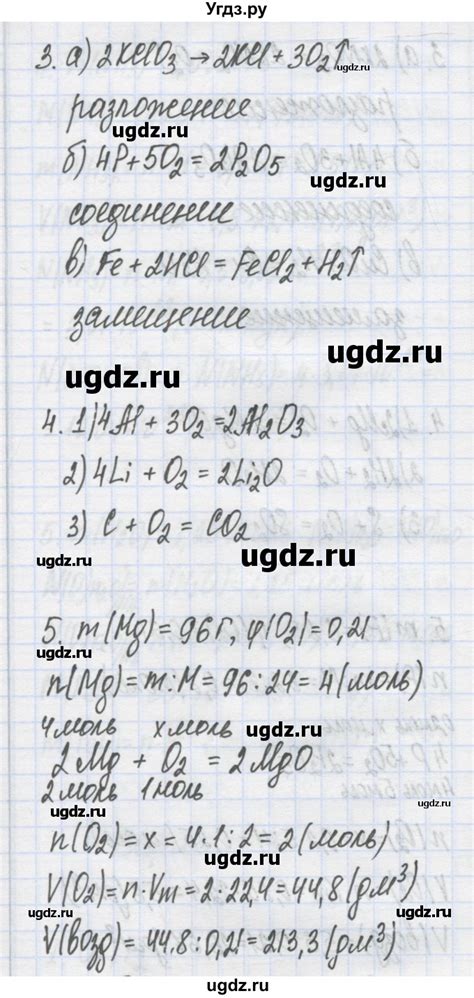 Угдз.ру
3. а) 2KClO₃ → 2KCl + 3O₂↑
ugdz.ru
разложение
ugdz.ru
б) 4P + 5O₂ = 2P₂O₅
ugdz.ru
соединение
в) Fe + 2HCl = FeCl₂ + H₂↑
замещение
ugdz.ru
ugdz.ru
4. 1) 4Al + 3O₂ = 2Al₂O₃
2) 4Li + O₂ = 2Li₂O
3) C + O₂ = CO₂
ugdz.ru
ugdz.ru
5. m(Mg) = 96г, φ(O₂) = 0,21
n(Mg) = m : M = 96 : 24 = 4 (моль)
4моль xмоль
ugdz.ru
2Mg + O₂ = 2MgO
2моль 1моль
ugdz.ru
n(O₂) = x = 4·1:2 = 2 (моль)
ugdz.ru
V(O₂) = n·Vm = 2·22,4 = 44,8 (дм³)
ugdz.ru
ugdz.ru
V(возд) = 44,8 : 0,21 = 213,3 (дм³)
ugdz.ru
ugdz.ru